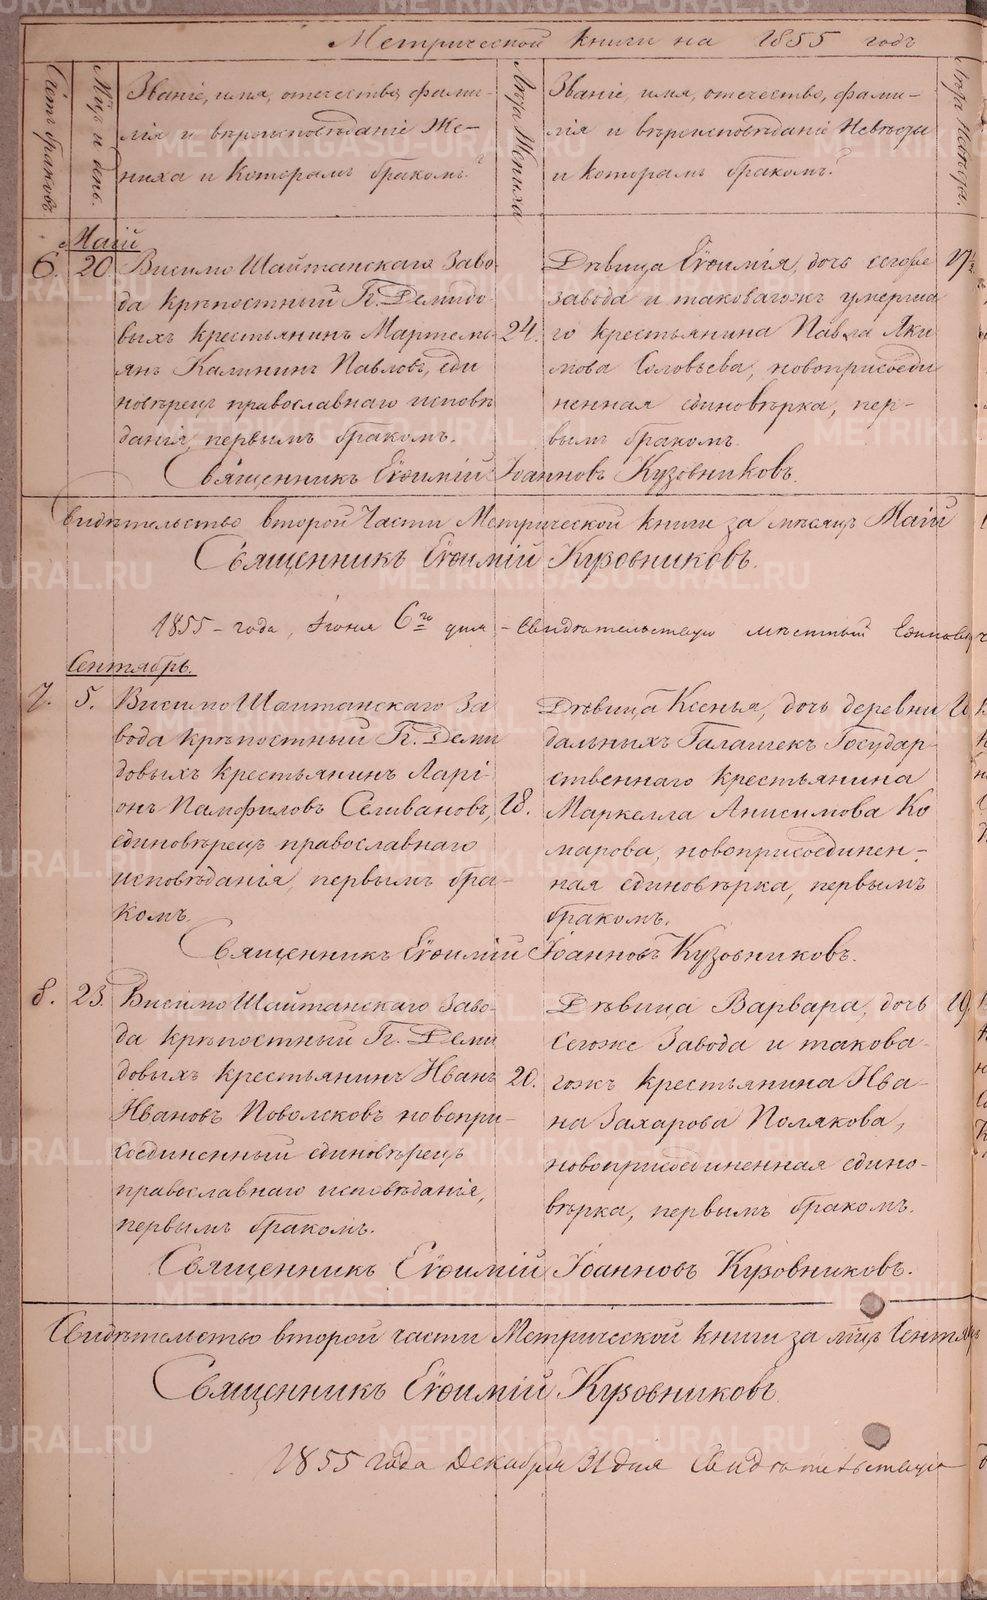 Метрической книги на 1855 годъ
Счетъ браковъ
Мѣц и день.
Званіе, имя, отечество, фами-
лія и вѣроисповѣданіе Же-
ниха и Которымъ бракомъ.
Лѣта Жениха
Званіе, имя, отечество, фами-
лія и вѣроисповѣданіе Невѣсты
и Которымъ бракомъ.
Лѣта Невѣсты.
Маій
6. 20. Висимо Шайтанскаго Заво-
да крѣпостный Г. Демидо-
выхъ крестьянинъ Мартемь-
янъ Калининъ Павловъ, еди
новѣрецъ православнаго исповѣ
данія, первымъ бракомъ.
24.
Дѣвица Евѳимія, дочь сегоже
завода и таковагожъ умерша
го крестьянина Павла Яки
мова Соловьева, новоприсоеди
ненная единовѣрка, пер-
вымъ бракомъ.
17½
Священникъ Евѳимій Іоанновъ Кузовниковъ.
Свидѣтельство второй Части Метрической книги за мѣсяцъ Маій
Священникъ Евѳимій Кузовниковъ.
1855 - года, Іюня 6го дня - Свидѣтельствую мѣстный
Сентябрь.
7. 5. Висимо Шаитанскаго За
вода крѣпостный Г. Деми
довыхъ крестьянинъ Ларі-
онъ Памфиловъ Селивановъ,
единовѣрецъ православнаго
исповѣданія, первымъ бра-
комъ.
18.
Дѣвица Ксенья, дочь деревни
дальныхъ Галашекъ Государ-
ственнаго крестьянина
Маркелла Анисимова Ко
марова, новоприсоединен-
ная единовѣрка, первымъ
бракомъ.
Священникъ Евѳимій Іоанновъ Кузовниковъ.
8. 23. Висимо Шайтанскаго Заво-
да крѣпостный Г. Деми
довыхъ крестьянинъ Иванъ
Ивановъ Поволсковъ новопри-
соединенный единовѣрецъ
православнаго исповѣданія,
первымъ бракомъ.
20.
Дѣвица Варвара, дочь
Сегоже Завода и такова-
гожъ крестьянина Ива-
на Захарова Полякова,
новоприсоединенная едино-
вѣрка, первымъ бракомъ.
19.
Священникъ Евѳимій Іоанновъ Кузовниковъ.
Свидѣтельство второй части Метрической книги за мѣцъ Сентяб
Священникъ Евѳимій Кузовниковъ
1855 года Декабря 31 дня Свидѣтельствую
METRIKI.GASO-URAL.RU